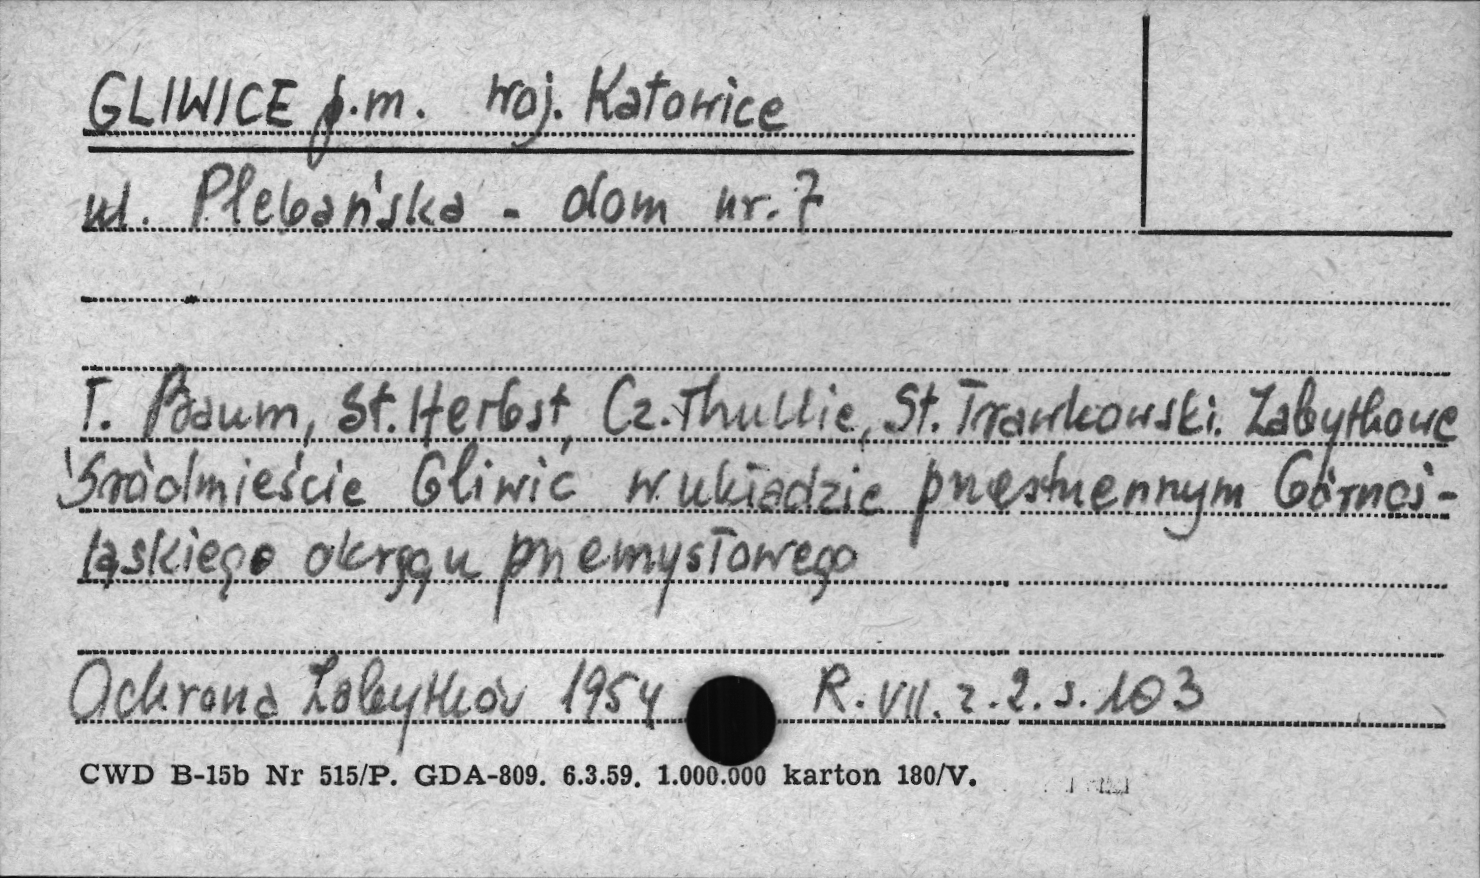 GLIWICE p.m. woj. Katowice
ul. Plebańska - dom nr. 7
T. Baum, St. Herbst, Cz. Thullie, St. Trawkowski. Zabytkowe
Śródmieście Gliwic w układzie przestrzennym Górnoś-
ląskiego okręgu przemysłowego
Ochrona Zabytków 1954 R. VII. z. 2. s. 103
CWD B-15b Nr 515/P. GDA-809. 6.3.59. 1.000.000 karton 180/V.